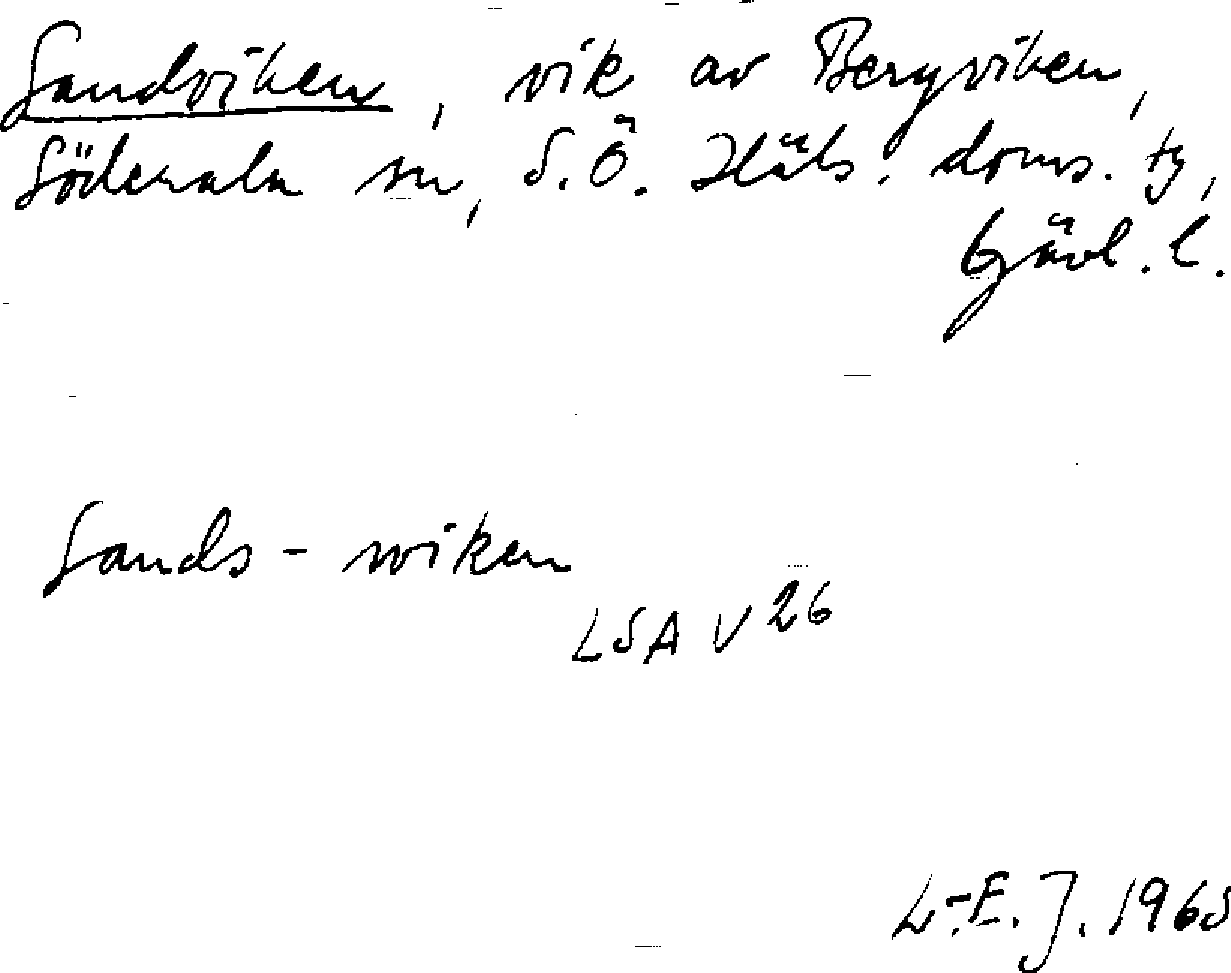 Sandviken, vik av Bergviken,
Söderala sn, S.Ö. Häls. doms. tg,
Gävl. l.
Sands - wiken
LSA V 26
L.-E. J. 1965